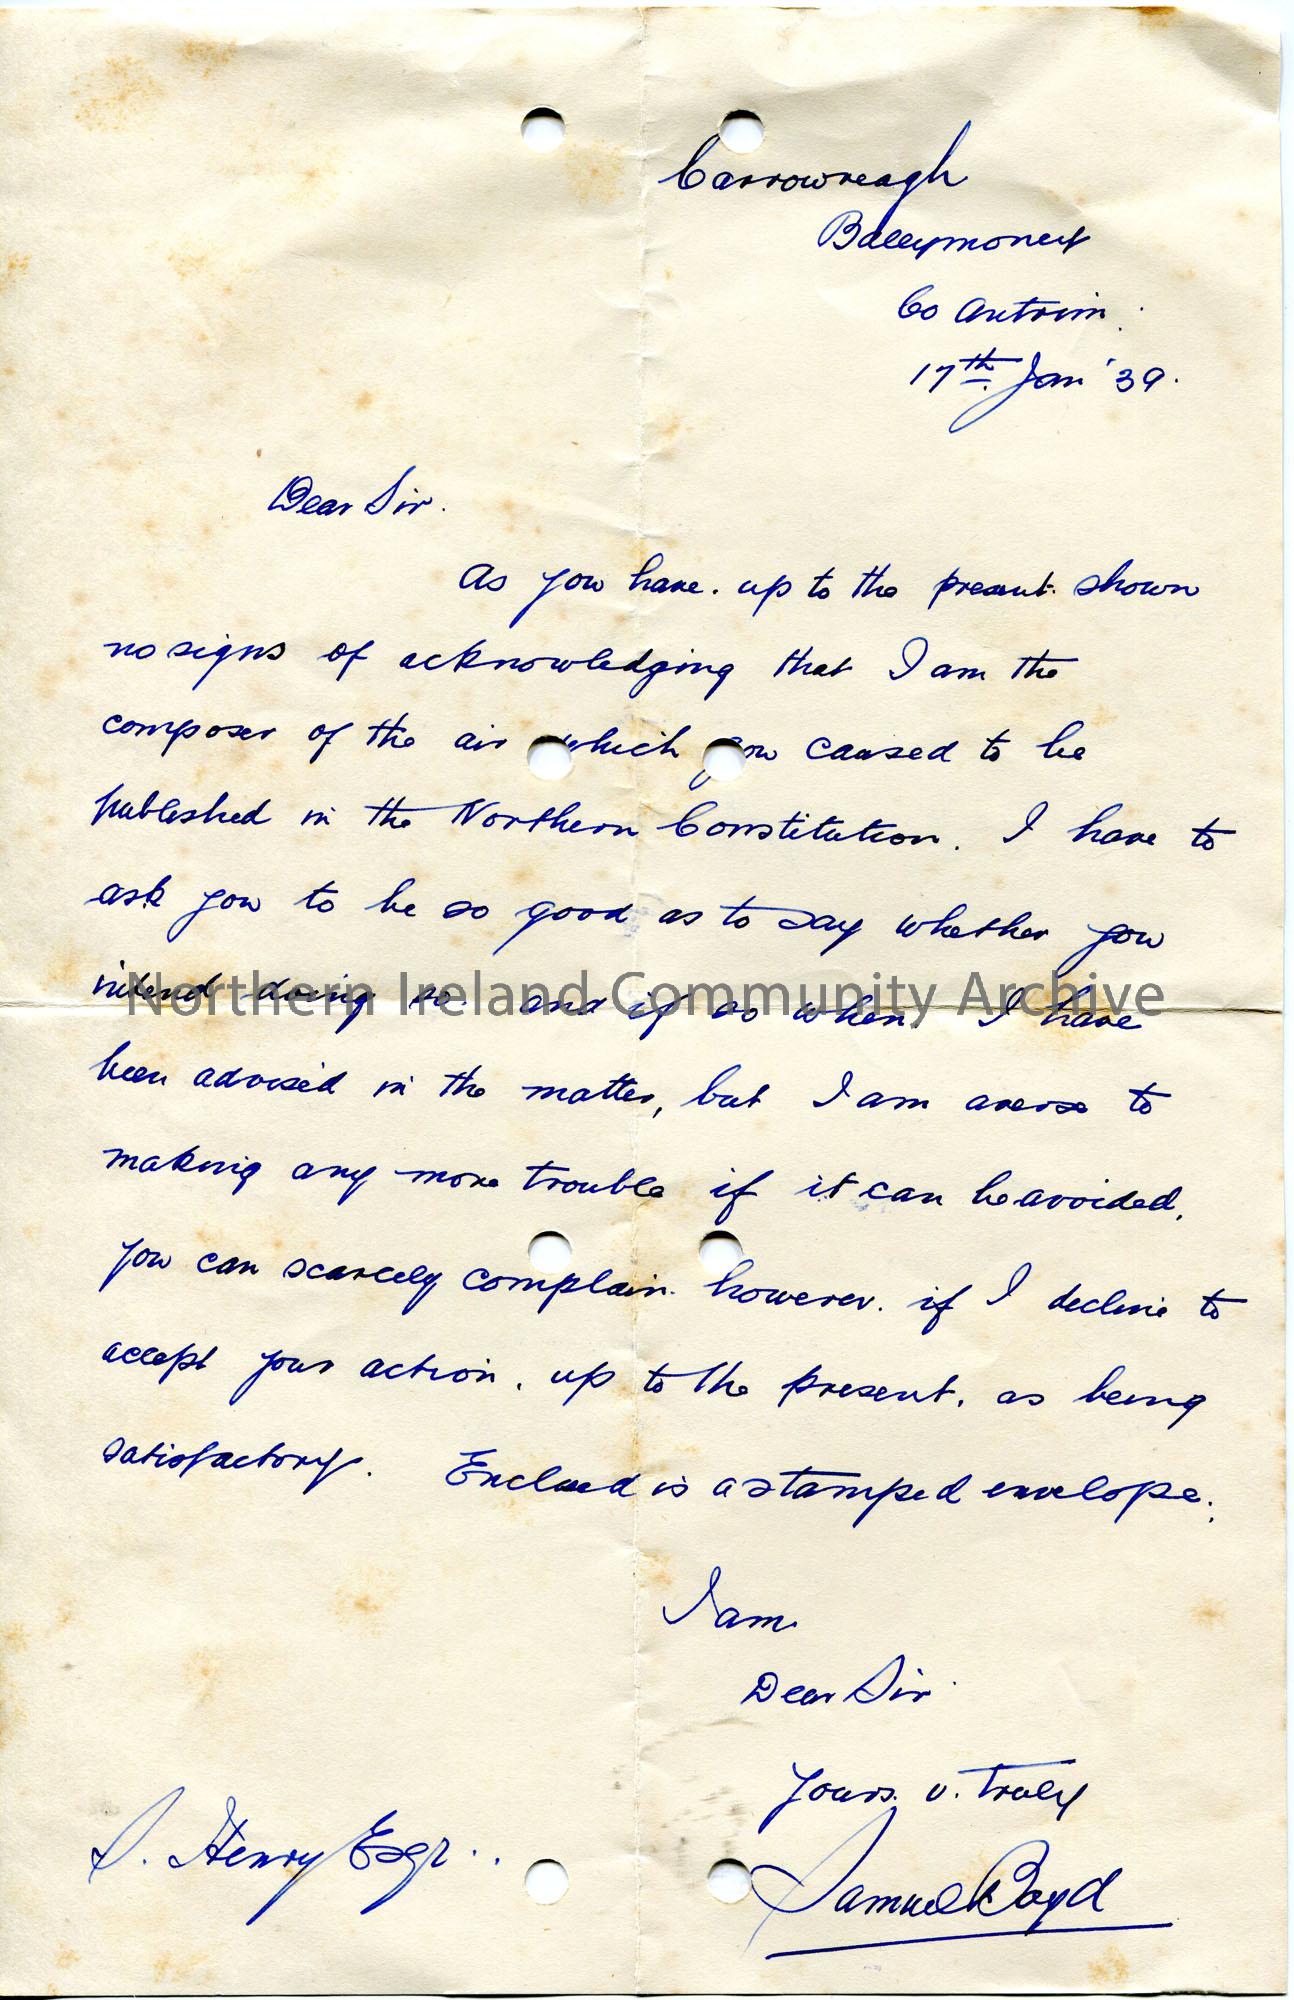 Carrowreagh
Ballymoney
Co Antrim.
17th Jan '39.
Dear Sir.
As you have. up to the present. shown
no signs of acknowledging that I am the
composer of the air which you caused to be
published in the Northern Constitution. I have to
ask you to be so good as to say whether you
intend doing so. and if so when. I have
been advised in the matter, but I am averse to
making any more trouble if it can be avoided.
You can scarcely complain. however. if I decline to
accept your action. up to the present. as being
satisfactory. Enclosed is a stamped envelope.
I am.
Dear Sir.
Yours. v. truly
Samuel Boyd
S. Henry Esqr..
Northern Ireland Community Archive